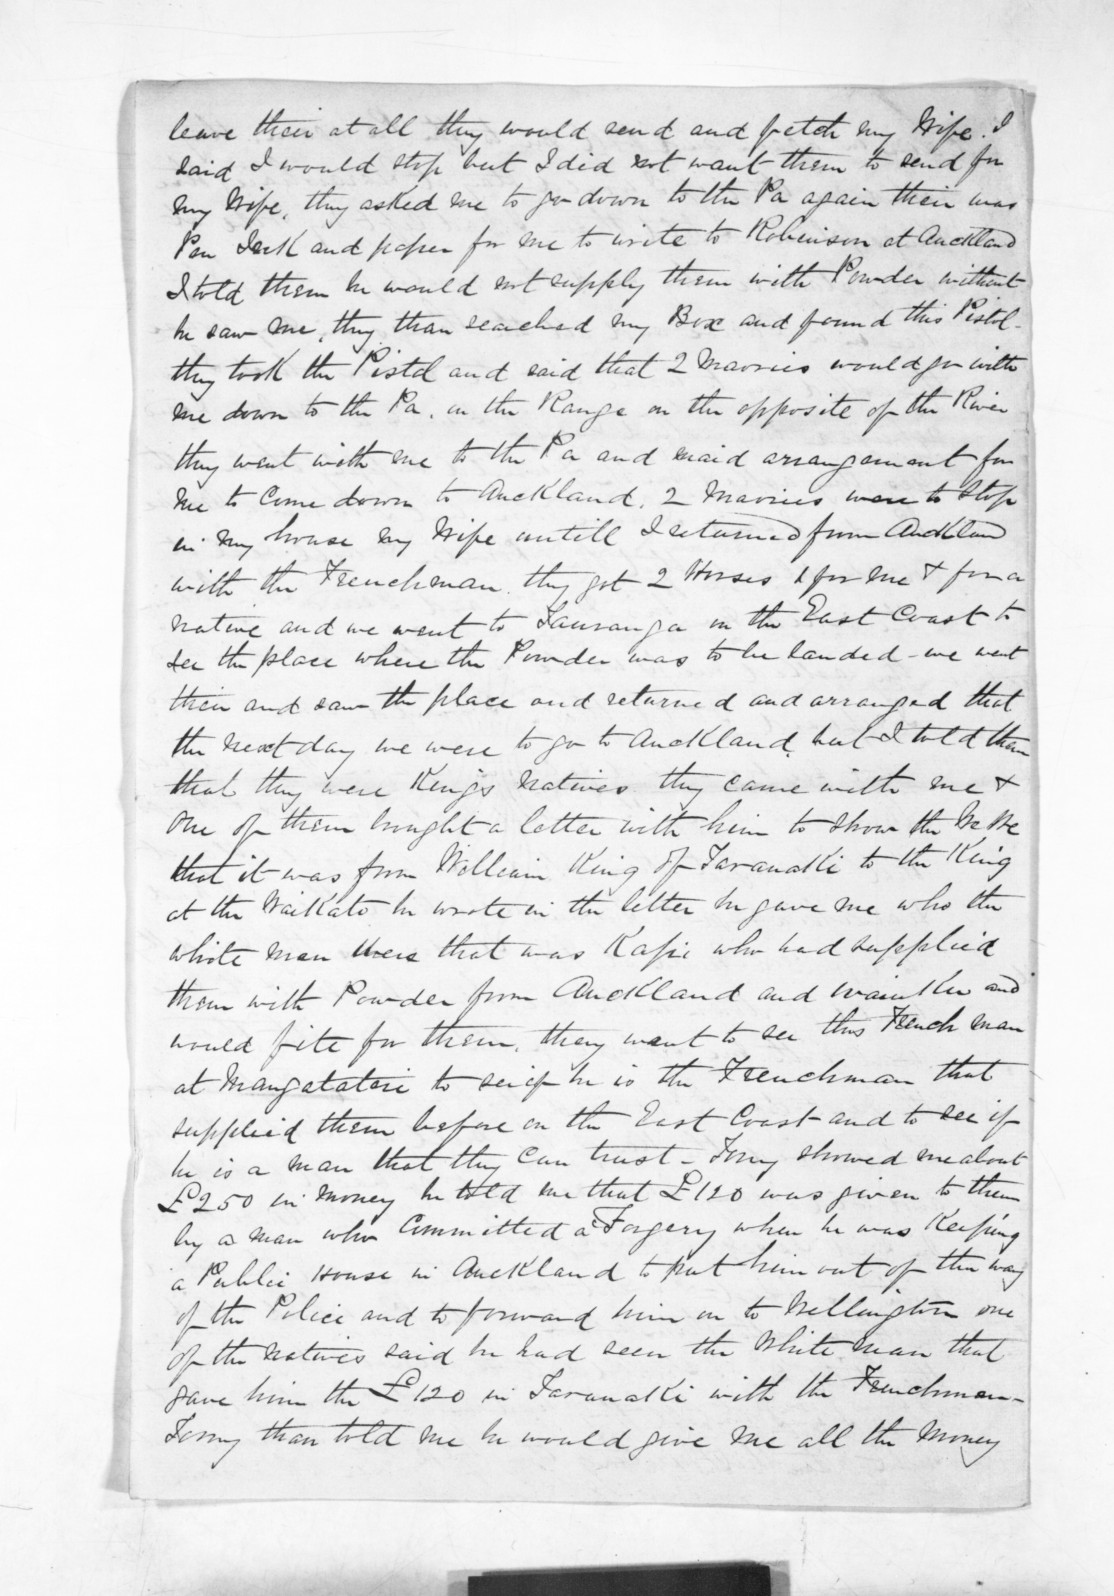 leave their at all they would send and fetch my Wife. I
said I would stop but I did not want them to send for
my Wife, they asked me to go down to the Pa again their was
Pen Ink and paper for me to write to Robinson at Auckland
I told them he would not supply them with Powder without
he saw me, they than searched my Box and found this Pistol-
they took the Pistol and said that 2 Maories would go with
me down to the Pa. on the Range on the opposite of the River
they went with me to the Pa and maid arrangement for
me to Come down to Auckland, 2 Maories were to stop
in my house my Wife untill I returned from Auckland
with the Frenchman. they got 2 Horses 1 for me & for a
native and we went to Tauranga on the East Coast to
see the place where the Powder was to be landed - we went
their and saw the place and returned and arranged that
the next day we were to go to Auckland, but I told them
that they were Kings Natives they came with me &
One of them bought a letter with him to show the
that it was from William King of Taranaki to the King
at the Waikato he wrote in the letter he gave me who the
white man were that was Kapi who had supplied
them with Powder from Auckland and and
would fite for them, they want to see this French man
at Mangatatari to see if he is the Frenchman that
supplied them before on the East Coast and to see if
he is a man that they Can trust - Tomy showed me about
£250 in Money he told me that £120 was given to them
by a man who Committed a Forgery when he was Keeping
a Public House in Auckland to put him out of the way
of the Police and to forward him on to Wellington one
of the natives said he had seen the White man that
gave him the £120 in Taranaki with the Frenchman-
Tomy than told me he would give me all the Money